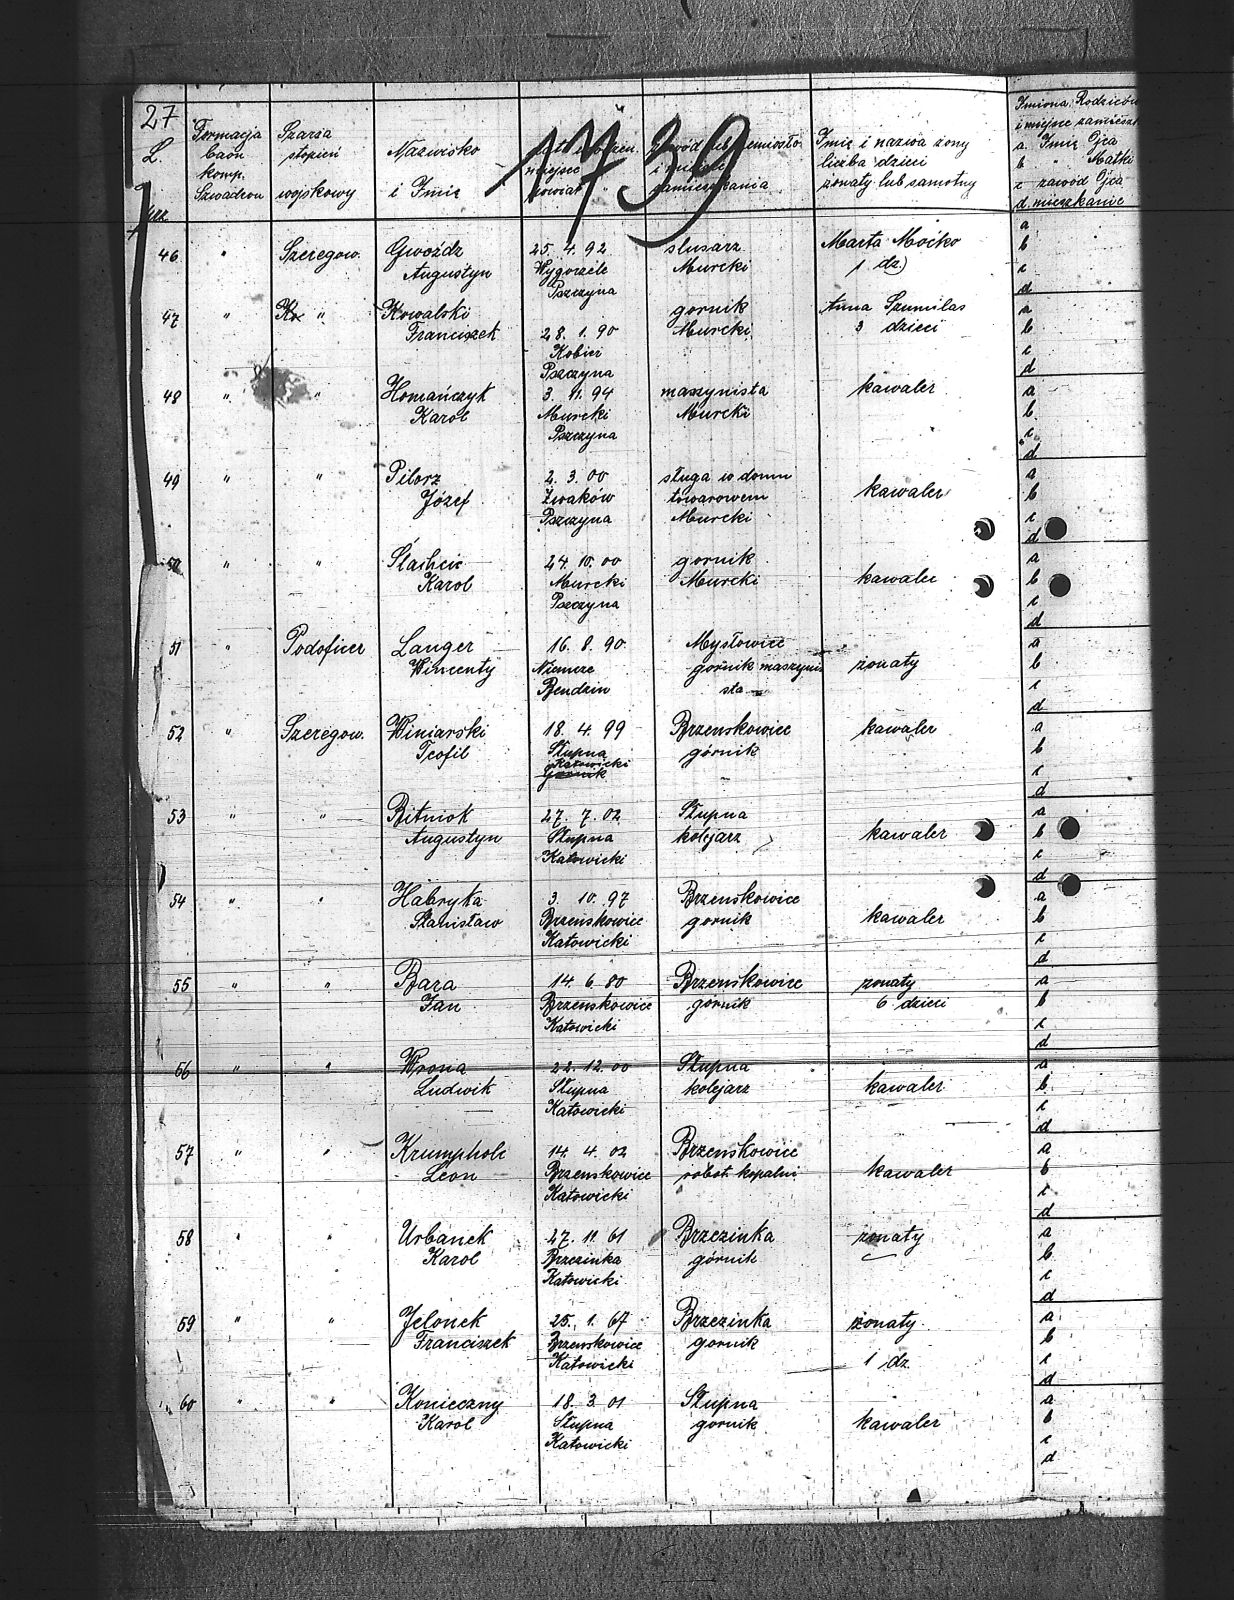 27
1739
L.
Formacja
baon
komp.
Szwadron
Szarża
stopień
wojskowy
Nazwisko
i Imię
miejsce
powiat
i miejsce
zamieszkania
Imię i nazwa żony
liczba dzieci
żonaty lub samotny
Imiona Rodziców
i miejsce zamieszk
a. Imię Ojca
b " Matki
c zawód Ojca
d. mieszkanie
46 " Szeregow. Gwoźdz 25. 4. 92 slusarz Marta Moćko a
Augustyn Wygorzele Murcki 1 dz. b
Pszczyna c
d
47 " Ko " Kowalski gornik Anna Szumilas a
Franciszek 28. 1. 90 Murcki 3 dzieci b
Kobier c
Pszczyna d
48 " " Homańczyk 3. 11. 94 maszynista kawaler a
Karol Murcki Murcki b
Pszczyna c
d
49 " " Pilorz 2. 3. 00 sługa w domu a
Józef Żwaków towarowem kawaler b
Pszczyna Murcki c
d
50 " " Ślachcic 24. 10. 00 gornik a
Karol Murcki Murcki kawaler b
Pszczyna c
d
51 " Podoficer Langer 16. 8. 90 Mysłowice a
Wincenty Niemcze gornik maszyni żonaty b
Bendzin sta c
d
52 " Szeregow. Winiarski 18. 4. 99 Brzenskowice kawaler a
Teofil Słupna górnik b
Katowicki c
gornik d
53 " " Bitniok 27. 7. 02 Słupna a
Augustyn Słupna kolejarz kawaler b
Katowicki c
d
54 " " Habryka 3. 10. 97 Brzenskowice a
Stanisław Brzenskowice gornik kawaler b
Katowicki c
d
55 " " Bara 14. 6. 80 Brzenskowice zonaty a
Jan Brzenskowice górnik 6 dzieci b
Katowicki c
d
56 " " Wrona 22. 12. 00 Słupna a
Ludwik Słupna kolejarz kawaler b
Katowicki c
d
57 " " Krumpholc 14. 4. 02 Brzenskowice a
Leon Brzenskowice robot. kopalni kawaler b
Katowicki c
d
58 " " Urbanek 27. 11. 61 Brzezinka zonaty a
Karol Brzezinka górnik b
Katowicki c
d
59 " " Jelonek 25. 1. 67 Brzezinka żonaty a
Franciszek Brzenskowice gornik b
Katowicki 1 dz. c
d
60 " " Konieczny 18. 3. 01 Słupna a
Karol Słupna gornik kawaler b
Katowicki c
d